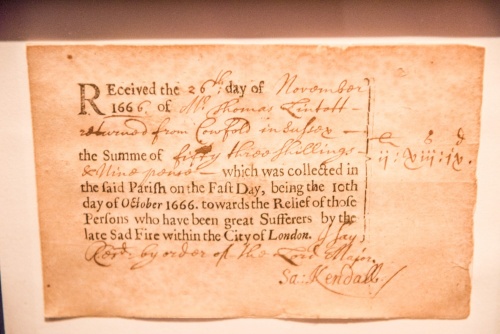 REceived the 26th day of November
1666. of Mr. Thomas Lintott
returned from Cowfold in Sussex
the Summe of fifty three shillings
& Nine pence which was collected in
the said Parish on the Fast Day, being the 10th
day of October 1666. towards the Relief of those
Persons who have been great Sufferers by the
late Sad Fire within the City of London. I say,
Recd. by order of the Lord Major.
Sa: Kendall
£ s d
ij : xiij : ix.